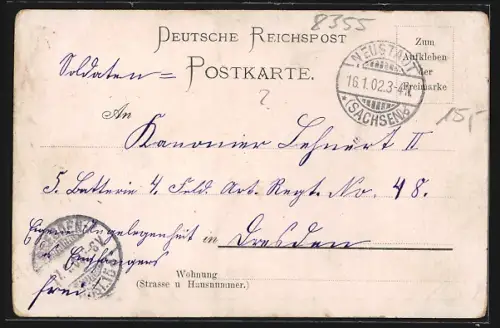 8355
DEUTSCHE REICHSPOST
Soldaten = POSTKARTE.
Zum
Aufkleben
der
Freimarke
NEUSTADT
16.1.02.3-4N.
(SACHSEN)
15,-
An
Kanonier Lehnert II
5. Batterie 4. Feld. Art. Regt. No. 48.
Eigene Angelegenheit in Dresden
d. Empfängers
frei
Wohnung
(Strasse u Hausnummer.)